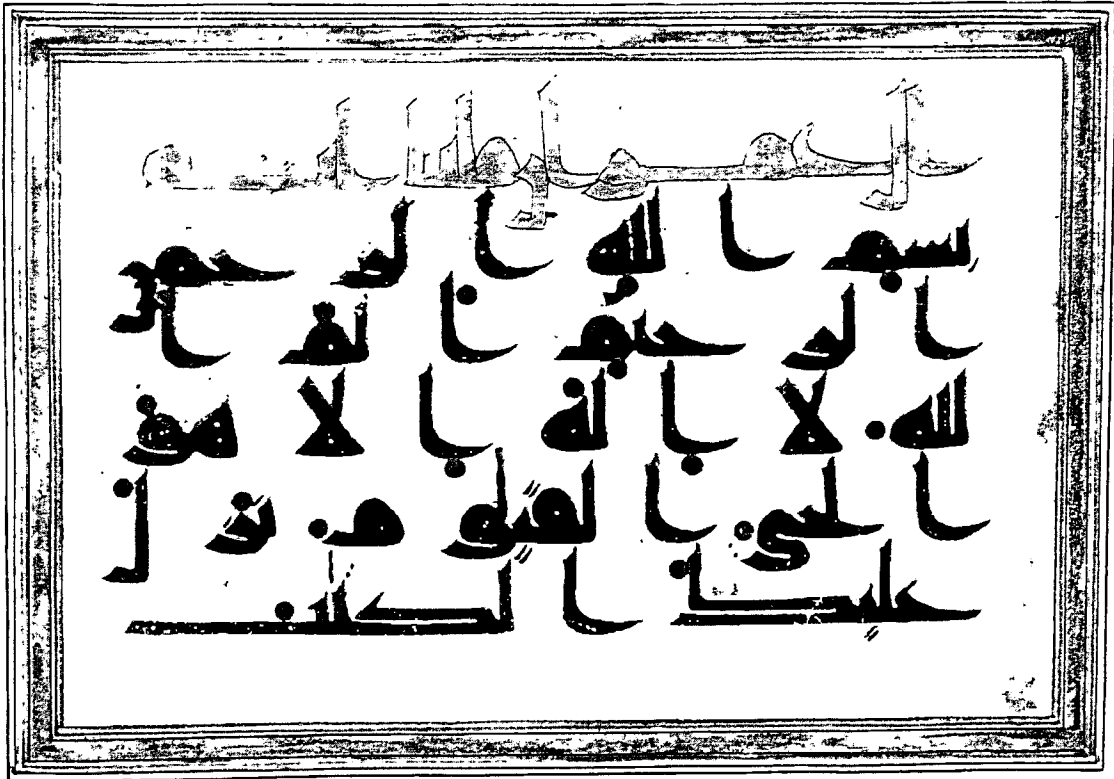 بسم الله الرحمن
الرحيم الم ا
لله لا اله الا هو
الحي القيوم نزل
عليك الكتب